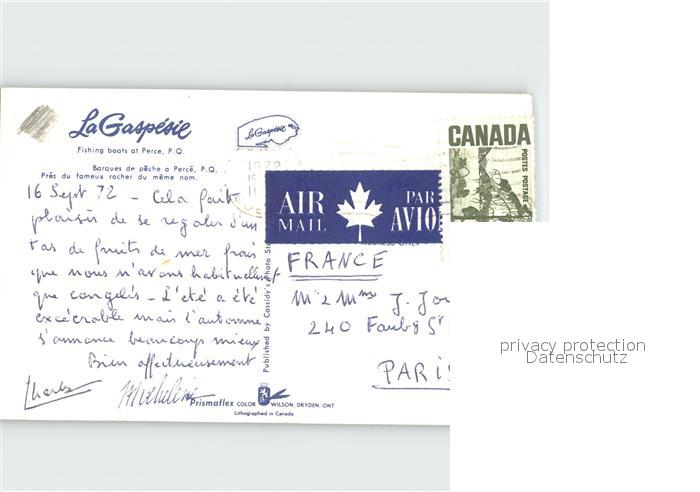 La Gaspésie
Fishing boats at Perce, P.Q.
Barques de pêche a Percé, P.Q.
Près du fameux rocher du même nom.
La Gaspésie
1972
CANADA
POSTES POSTAGE
AIR MAIL
PAR AVIO
16 Sept 72 - Cela fait
plaisir de se regaler d'un
tas de fruits de mer frais
que nous n'avons habituellemt
que congelés - L'été a été
excécrable mais l'automne
s'annonce beaucoup mieux
Bien affectueusement
Charles Micheline
Published by Cassidy's Photo
FRANCE
Mr & Mme J. Jou
240 Faubg St
PARIS
Prismaflex COLOR WILSON, DRYDEN, ONT
Lithographed in Canada
privacy protection
Datenschutz